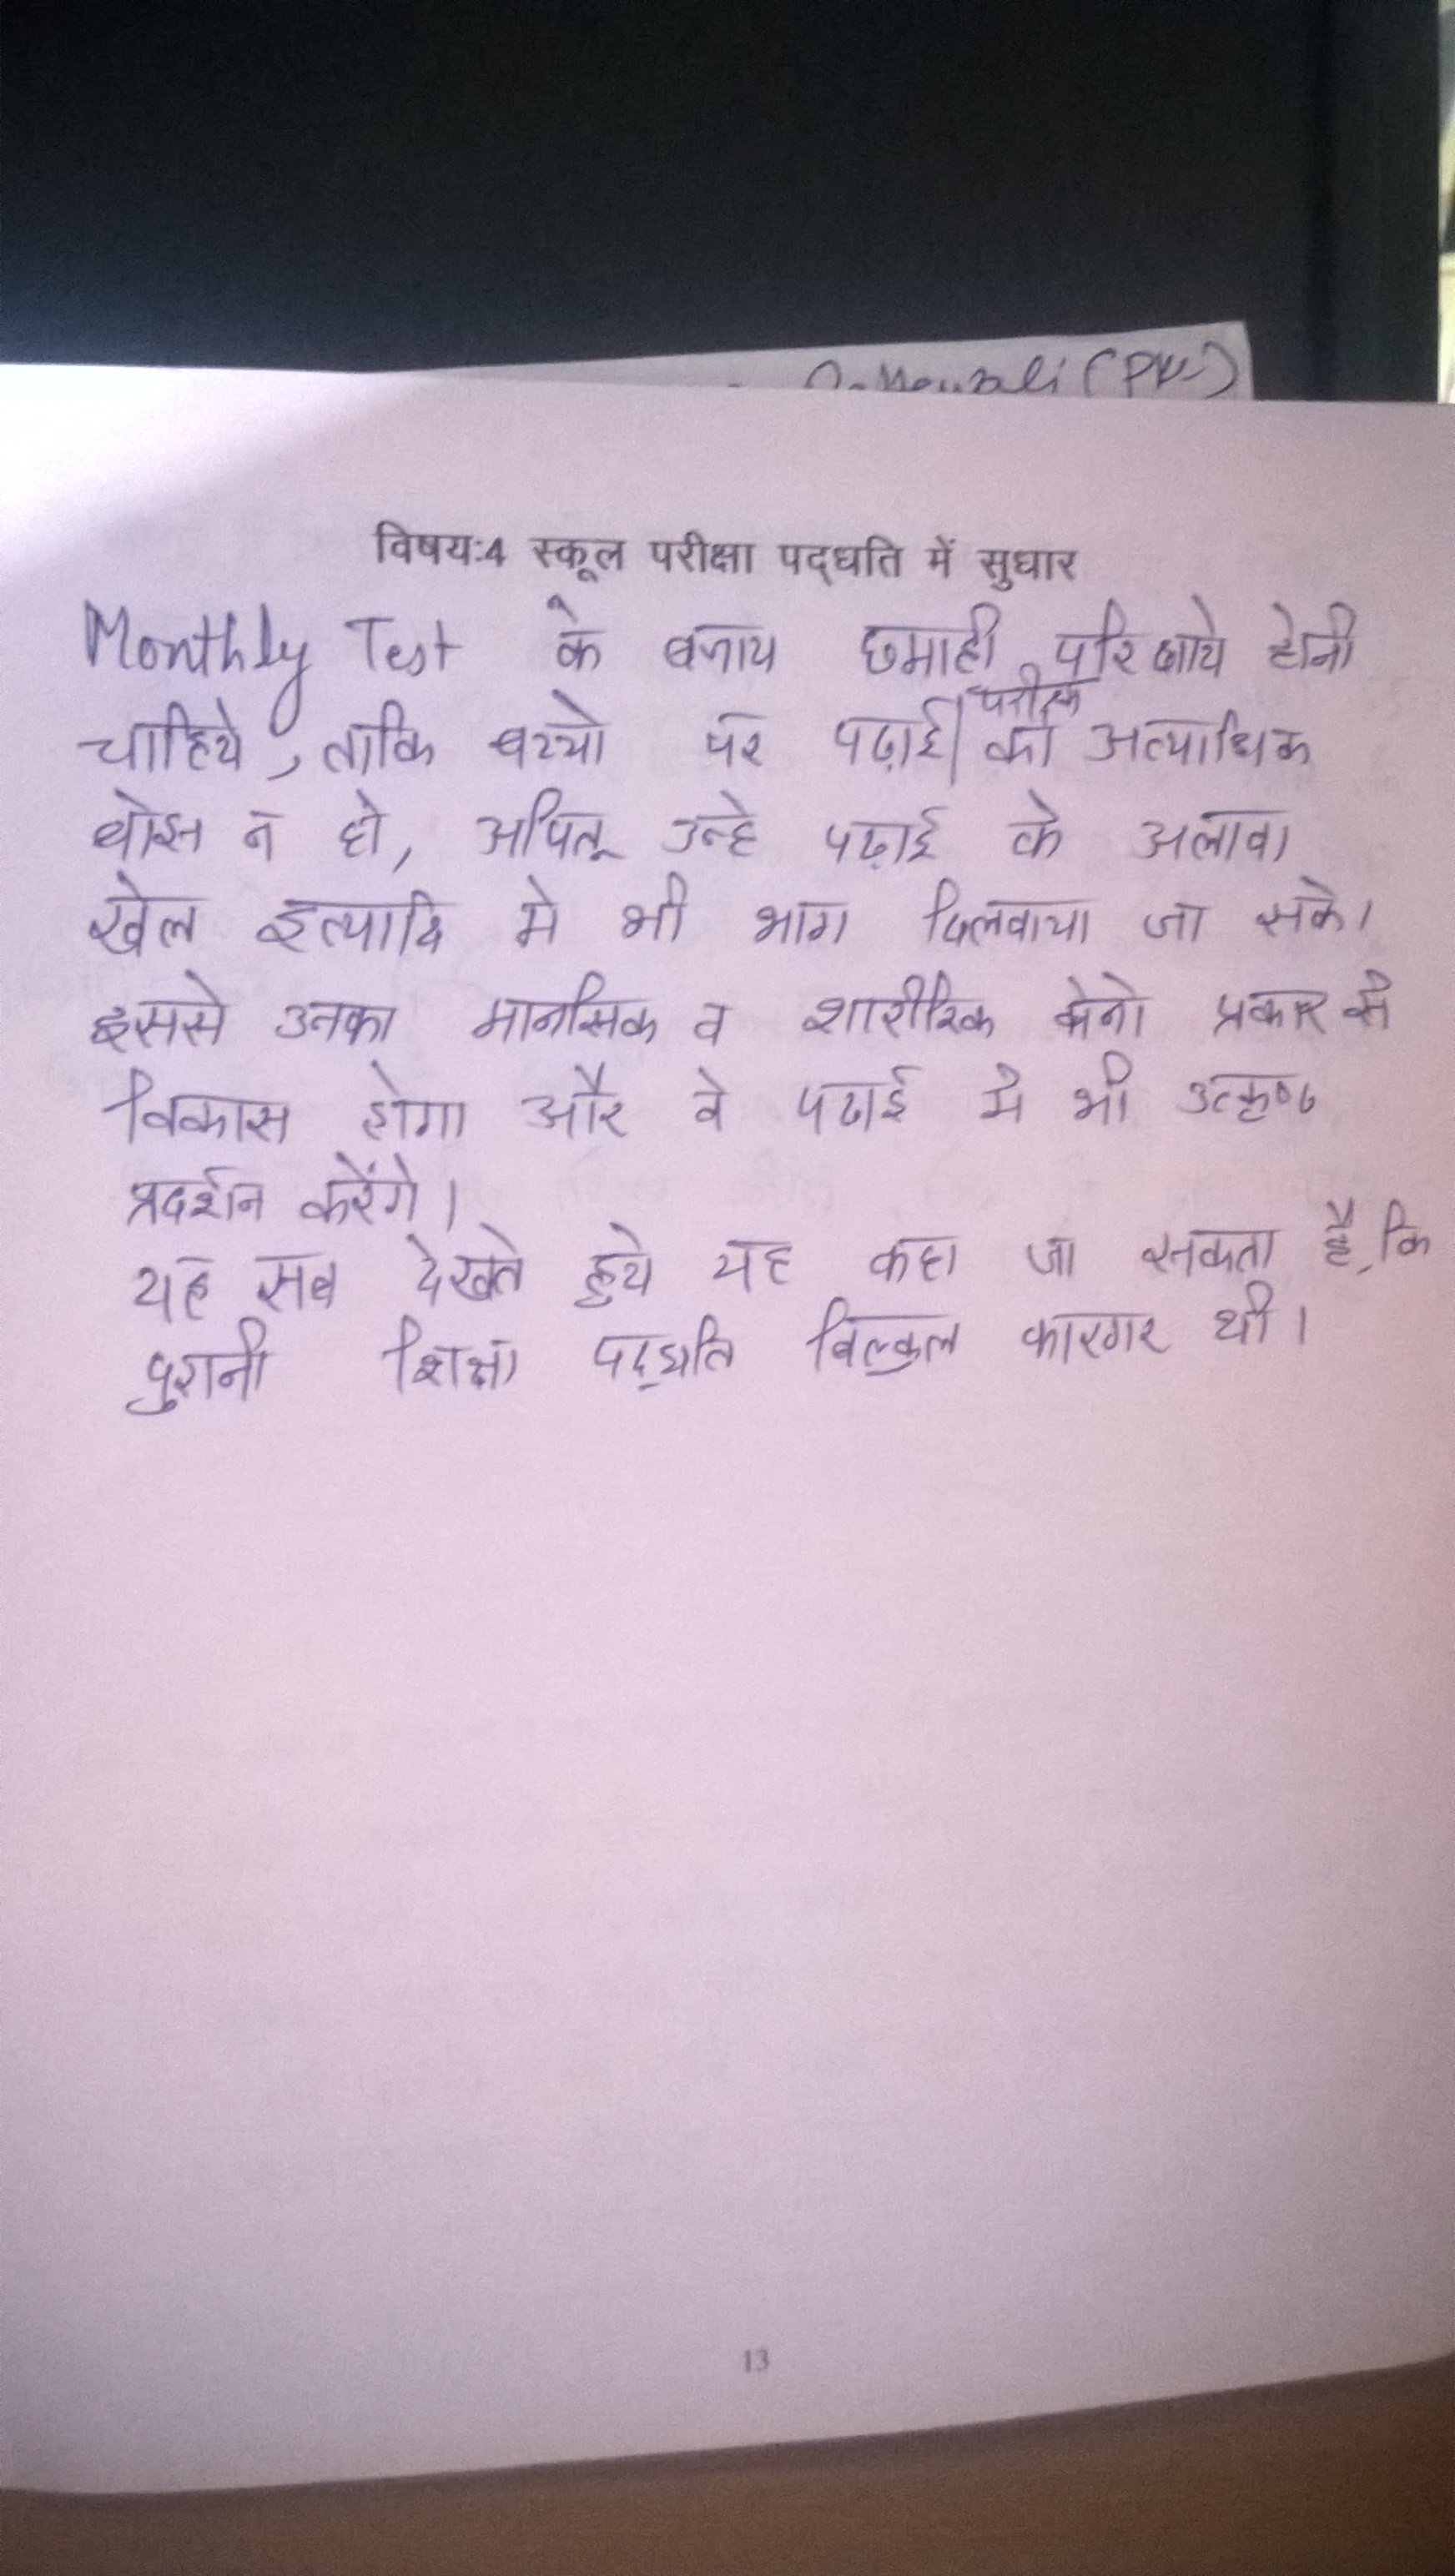 (PW)
विषय:4 स्कूल परीक्षा पद्धति में सुधार
Monthly Test के बजाय छमाही परिक्षाये होनी
परीक्षा
चाहिये, ताकि बच्चो पर पढ़ाई/ का अत्याधिक
बोझ न हो, अपितू उन्हे पढ़ाई के अलावा
खेल इत्यादि मे भी भाग दिलवाया जा सके।
इससे उनका मानसिक व शारीरिक दोनो प्रकार से
विकास होगा और वे पढाई मे भी उत्कृष्ठ
प्रदर्शन करेंगे।
यह सब देखते हुये यह कहा जा सकता है, कि
पुरानी शिक्षा पद्धति बिल्कुल कारगर थी।
13